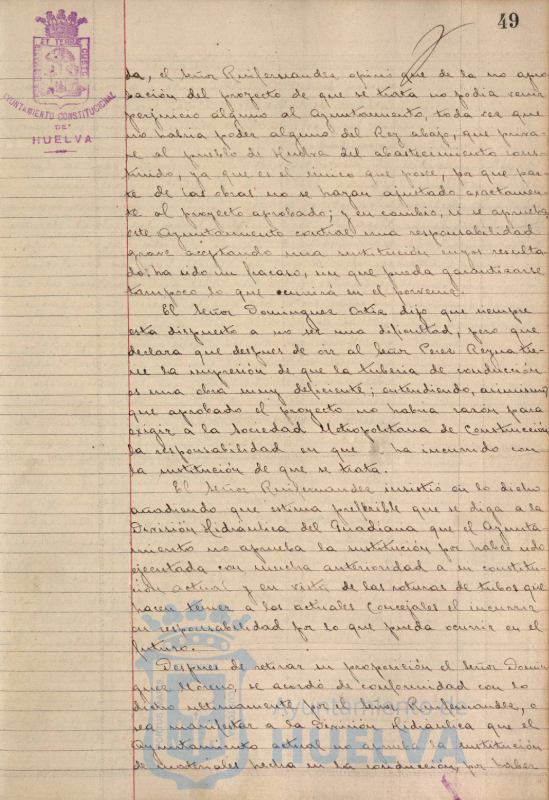 49
AYUNTAMIENTO CONSTITUCIONAL
DE
HUELVA
da, el Señor Ruifernandez opinó que de la no apro
bación del proyecto de que se trata no podia venir
perjuicio alguno al Ayuntamiento, toda vez que
no habia poder alguno del Rey abajo, que priva-
se al pueblo de Huelva del abastecimiento cons-
truido, ya que es el único que posee, por que par-
te de las obras no se hayan ajustado exactamen-
te al proyecto aprobado; y en cambio, si se aprueba
este Ayuntamiento contrae una responsabilidad
grave aceptando una sustitución cuyos resulta-
do, ha sido un fracaso, sin que pueda garantizarse
tampoco lo que ocurrirá en el porvenir.
El Señor Dominguez Ortiz dijo que siempre
está dispuesto a no ser una dificultad, pero que
declara que despues de oir al Señor Perez Reyna tie-
ne la impresión de que la tuberia de conducción
es una obra muy deficiente; entendiendo, asimismo
que aprobado el proyecto no habra razón para
exigir a la Sociedad Metropolitana de Construcción
la responsabilidad en que ha incurrido con
la sustitución de que se trata.
El Señor Ruifernandez insistió en lo dicho
añadiendo que estima preferible que se diga a la
División Hidráulica del Guadiana que el Ayunta-
miento no aprueba la sustitución por haber sido
ejecutada con mucha anterioridad a su constitu-
ción actual y en vista de las roturas de tubos que
hacen temer a los actuales Concejales el incurrir
en responsabilidad por lo que pueda ocurrir en el
futuro.
Despues de retirar su proposición el Señor Domin
guez Moreno, se acordó de conformidad con lo
dicho ultimamente por el Señor Ruifernandez, o
sea manifestar a la División Hidráulica que el
Ayuntamiento actual no aprueba la sustitución
de materiales hecha en la conducción, por haber
Ayuntamiento
HUELVA